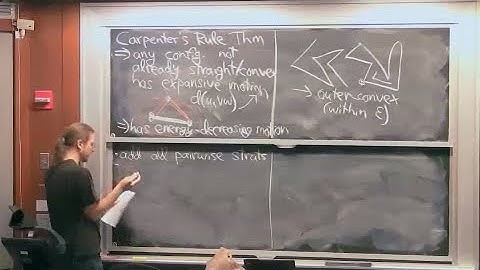 Carpenter's Rule Thm
⇒ any config. not
already straight/convex
has expansive motion
d(u,vw)
⇒ has energy-decreasing motion
→ outer convex
(within ε)
- add all pairwise struts